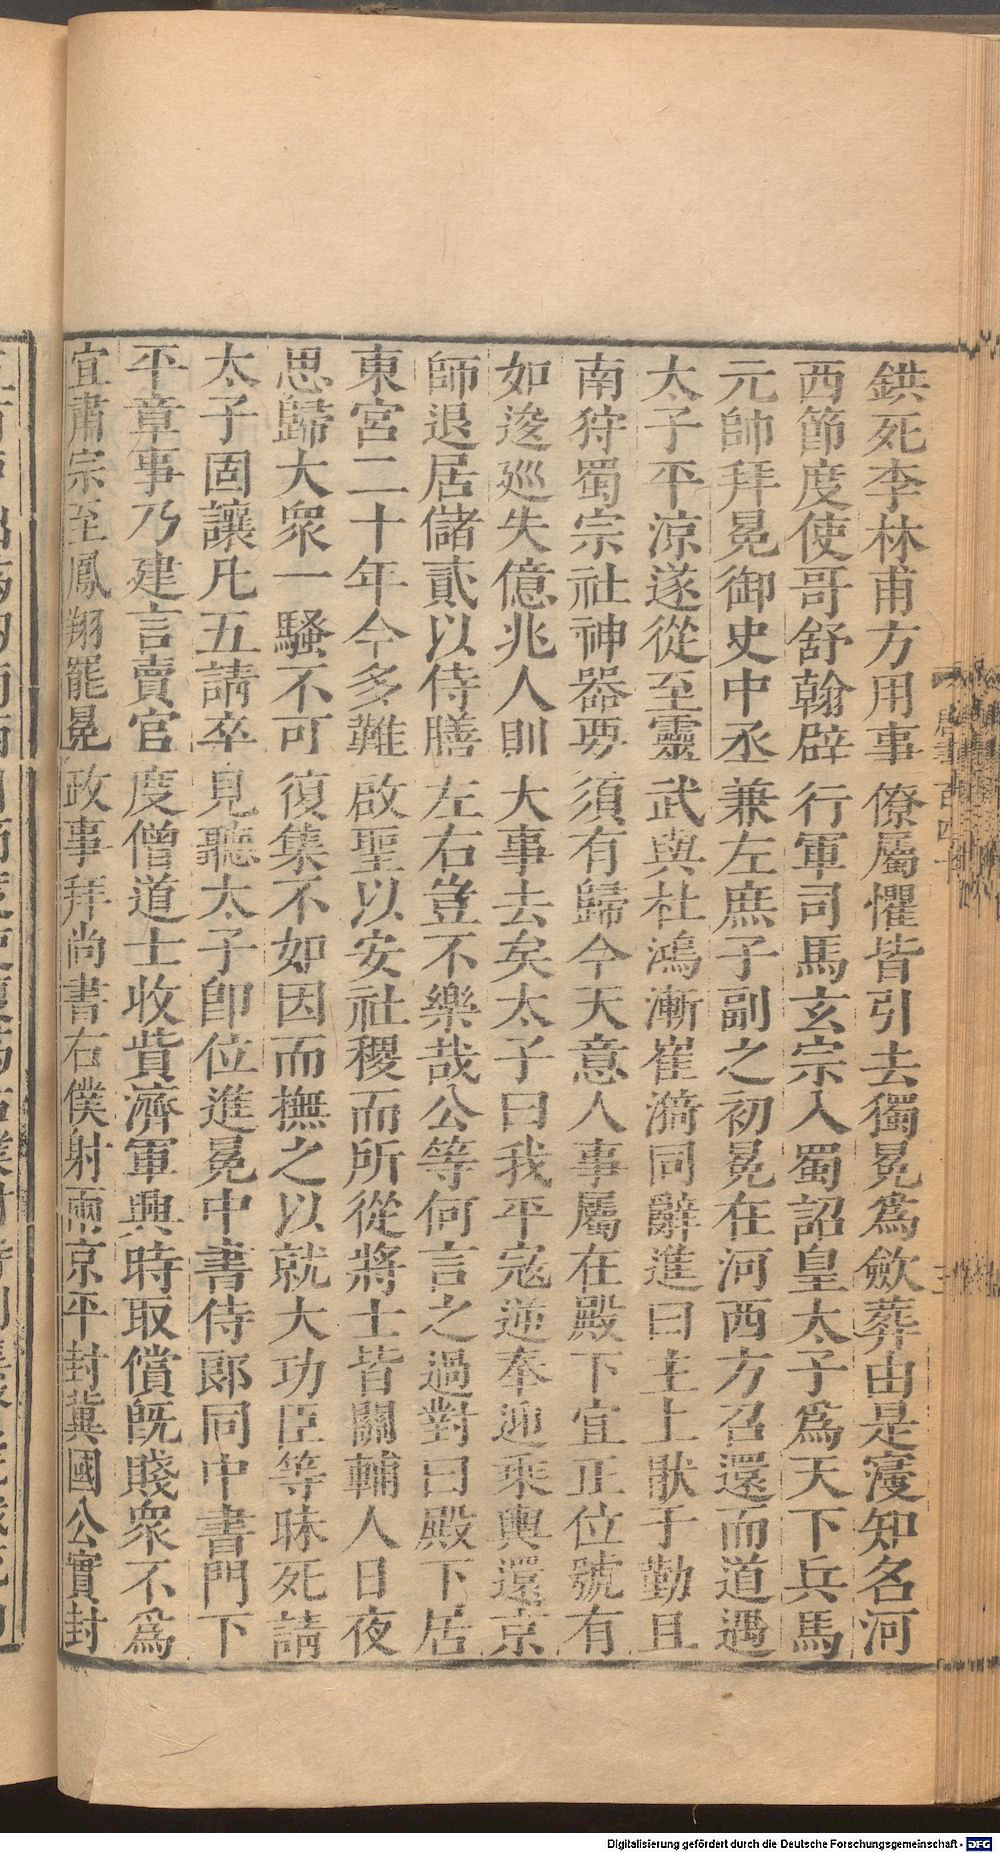 鉷死李林甫方用事僚屬懼皆引去獨冕爲斂葬由是寖知名河
西節度使哥舒翰辟行軍司馬玄宗入蜀詔皇太子爲天下兵馬
元帥拜冕御史中丞兼左庶子副之初冕在河西方召還而道遇
太子平涼遂從至靈武與杜鴻漸崔漪同辭進曰主上猒于勤且
南狩蜀宗社神器要須有歸今天意人事屬在殿下宜正位號有
如逡巡失億兆人則大事去矣太子曰我平寇逆奉迎乘輿還京
師退居儲貳以侍膳左右豈不樂哉公等何言之過對曰殿下居
東宮二十年今多難啟聖以安社稷而所從將士皆關輔人日夜
思歸大衆一騷不可復集不如因而撫之以就大功臣等昧死請
太子固讓凡五請卒見聽太子卽位進冕中書侍郎同中書門下
平章事乃建言賣官度僧道士收貲濟軍興時取償旣賤衆不爲
宜肅宗至鳳翔罷冕政事拜尚書右僕射兩京平封冀國公實封
唐書百四十
Digitalisierung gefördert durch die Deutsche Forschungsgemeinschaft - DFG